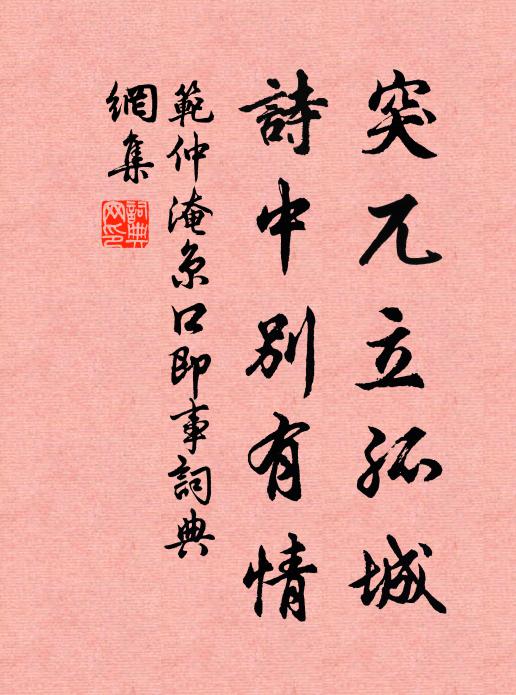 突兀立孤城
詩中別有情
範仲淹京口即事詞典
網集
詞典網印